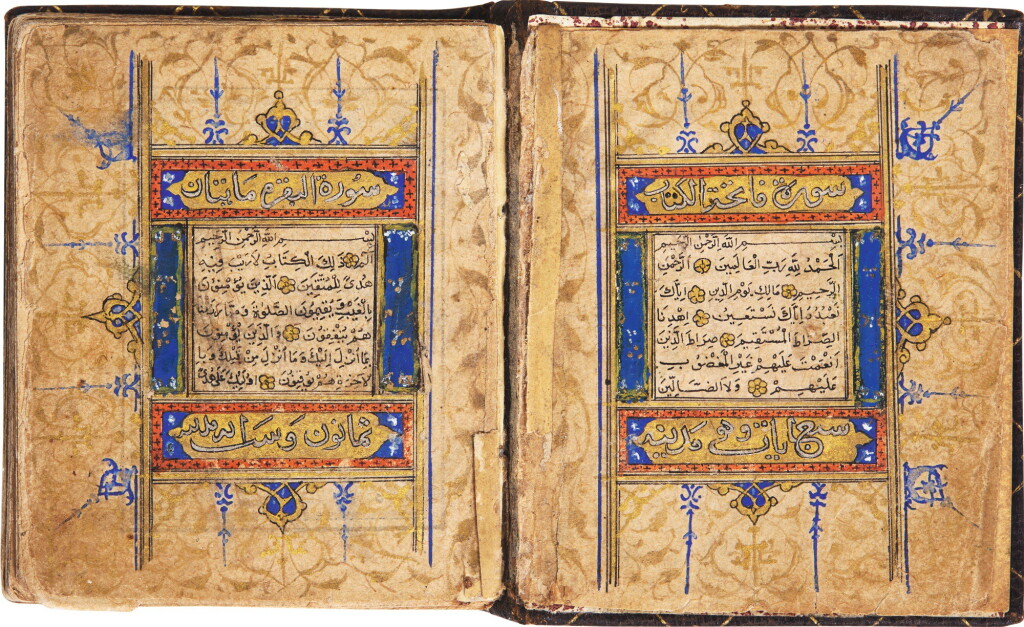 سورة فاتحة الكتاب
بسم الله الرحمن الرحيم
الحمد لله رب العالمين الرحمن
الرحيم مالك يوم الدين اياك
نعبد واياك نستعين اهدنا
الصراط المستقيم صراط الذين
انعمت عليهم غير المغضوب
عليهم ولا الضالين
سبع ايات وهي مدنيه
سورة البقرة مايتان
بسم الله الرحمن الرحيم
الم ذلك الكتاب لا ريب فيه
هدى للمتقين الذين يؤمنون
بالغيب ويقيمون الصلوة ومما رزقنا
هم ينفقون والذين يؤمنون
بما انزل اليك وما انزل من قبلك وبا
لاخرة هم يوقنون اولئك على هدى
ثمانون وست